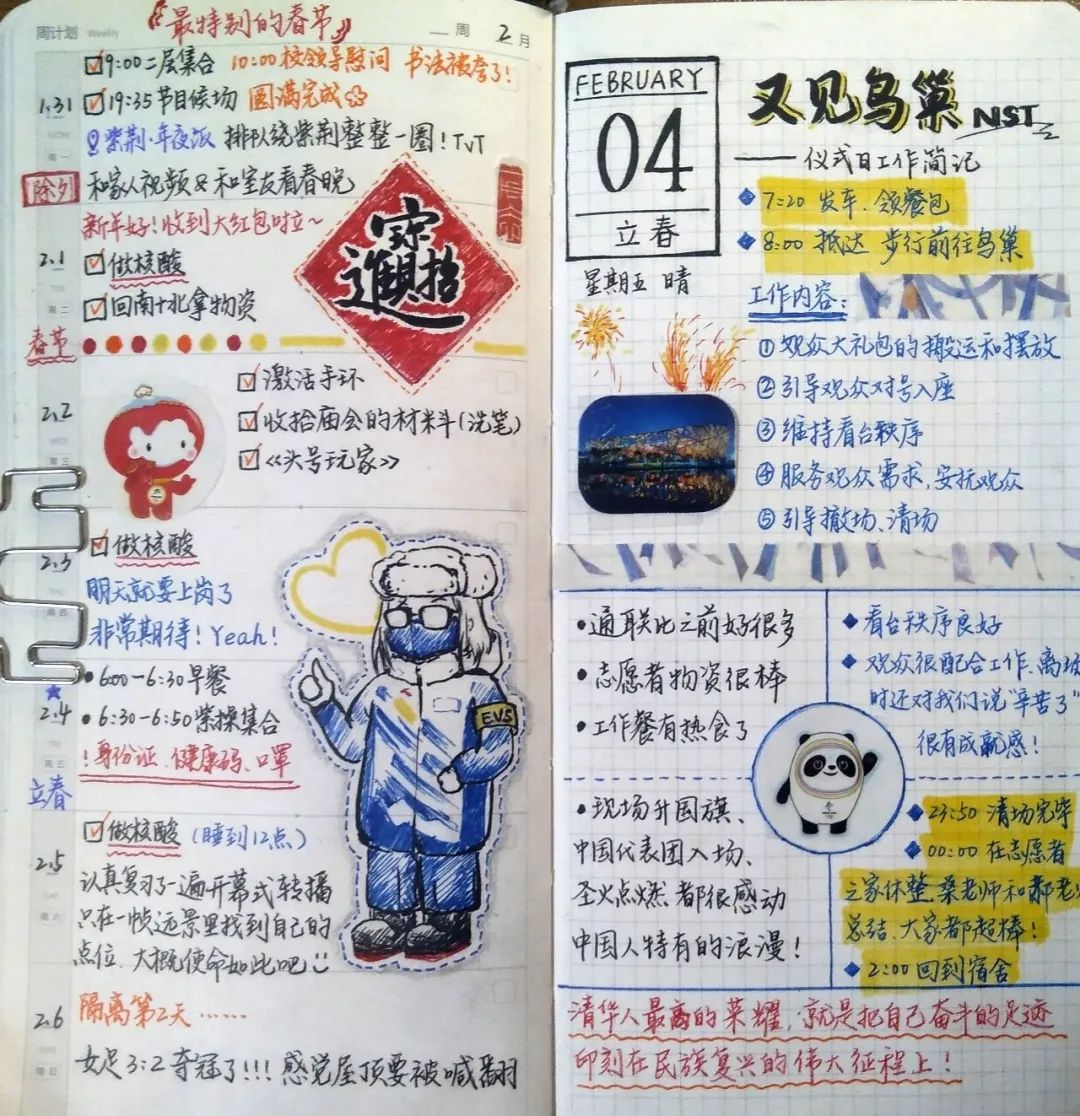 周计划 Weekly
《最特别的春节》
周 2月
9:00二层集合 10:00校领导慰问 书法被夸了!
1.31
19:35节目候场 圆满完成
紫荆·年夜饭 排队绕紫荆整整一圈!TvT
周一
除夕
和家人视频&和室友看春晚
新年好!收到大红包吋立~
2.1
做核酸
回南+北拿物资
周二
春节
招财进宝
2.2
激活手环
收拾庙会的材料(洗笔)
《头号玩家》
周三
2.3
做核酸
明天就要上岗了
周四
非常期待!Yeah!
6:00-6:30早餐
2.4
6:30-6:50紫操集合
EVS
周五
!身份证、健康码、口罩
立春
做核酸(睡到12点)
2.5
认真复习了一遍开幕式转播
只在一帧远景里找到自己的
点位、大概使命如此吧
周六
2.6
隔离第2天……
周日
女足3:2夺冠了!!!感觉屋顶要被喊翻
FEBRUARY
04
立春
星期五 晴
又见鸟巢 NST
——仪式日工作简记
7:20 发车、领餐包
8:00 抵达 步行前往鸟巢
工作内容:
①观众大礼包的搬运和摆放
②引导观众对号入座
③维持看台秩序
④服务观众需求,安抚观众
⑤引导撤场、清场
•通联比之前好很多
•志愿者物资很棒
•工作餐有热食了
看台秩序良好
观众很配合工作、离场
时还对我们说"辛苦了"
很有成就感!
•现场升国旗、
中国代表团入场、
圣火点燃都很感动
中国人特有的浪漫!
23:50 清场完毕
00:00 在志愿者
之家休整,桑老师和郝老
总结、大家都超棒!
2:00 回到宿舍
清华人最高的荣耀,就是把自己奋斗的足迹
印刻在民族复兴的伟大征程上!